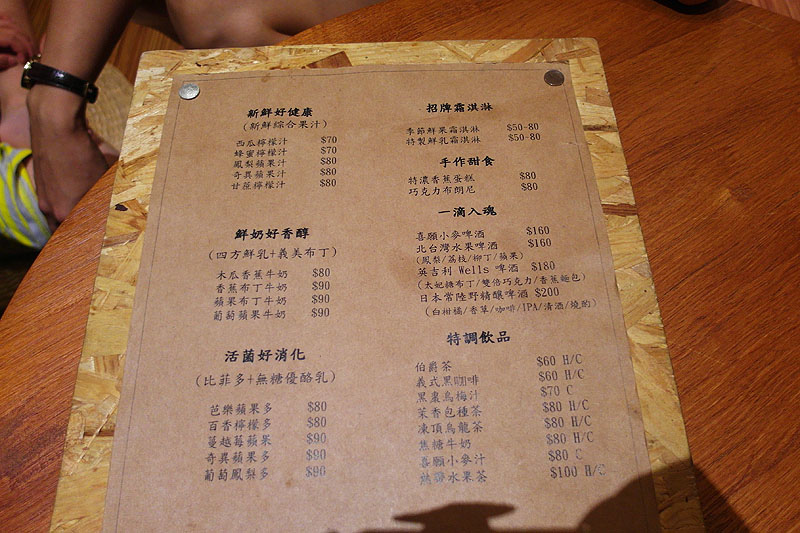 新鮮好健康
(新鮮綜合果汁)
西瓜檸檬汁 $70
蜂蜜檸檬汁 $70
鳳梨蘋果汁 $80
奇異蘋果汁 $80
甘蔗檸檬汁 $80
鮮奶好香醇
(四方鮮乳+義美布丁)
木瓜香蕉牛奶 $80
香蕉布丁牛奶 $90
蘋果布丁牛奶 $90
葡萄蘋果牛奶 $90
活菌好消化
(比菲多+無糖優酪乳)
芭樂蘋果多 $80
百香檸檬多 $80
蔓越莓蘋果 $90
奇異蘋果多 $90
葡萄鳳梨多 $90
招牌霜淇淋
季節鮮果霜淇淋 $50-80
特製鮮乳霜淇淋 $50-80
手作甜食
特濃香蕉蛋糕 $80
巧克力布朗尼 $80
一滴入魂
喜願小麥啤酒 $160
北台灣水果啤酒 $160
(鳳梨/荔枝/柳丁/蘋果)
英吉利 Wells 啤酒 $180
(太妃糖布丁/雙倍巧克力/香蕉麵包)
日本常陸野精釀啤酒 $200
(白柑橘/香草/咖啡/IPA/清酒/燒酌)
特調飲品
伯爵茶 $60 H/C
義式黑咖啡 $60 H/C
黑棗烏梅汁 $70 C
茉香包種茶 $80 H/C
凍頂烏龍茶 $80 H/C
焦糖牛奶 $80 H/C
喜願小麥汁 $80 C
水果茶 $100 H/C